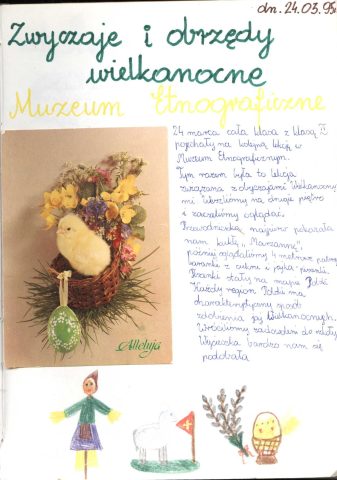 dn. 24.03.95
Zwyczaje i obrzędy
wielkanocne
Muzeum Etnograficzne
24 marca cała klasa z klasą
pojechały na kolejną lekcję w
Muzeum Etnograficznym.
Tym razem była to lekcja
związana z obyczajami Wielkanocny
mi. Weszliśmy na drugie piętro
i zaczęliśmy oglądać.
Przewodniczka najpierw pokazała
nam kukłę "Marzannę",
później oglądaliśmy
baranki z cukru i jajka - pisanki.
Pisanki stały na mapie Polski
Każdy region Polski ma
charakterystyczny sposób
zdobienia jaj Wielkanocnych.
Wróciliśmy zadowoleni do szkoły
Wycieczka bardzo nam się
podobała
Alleluja